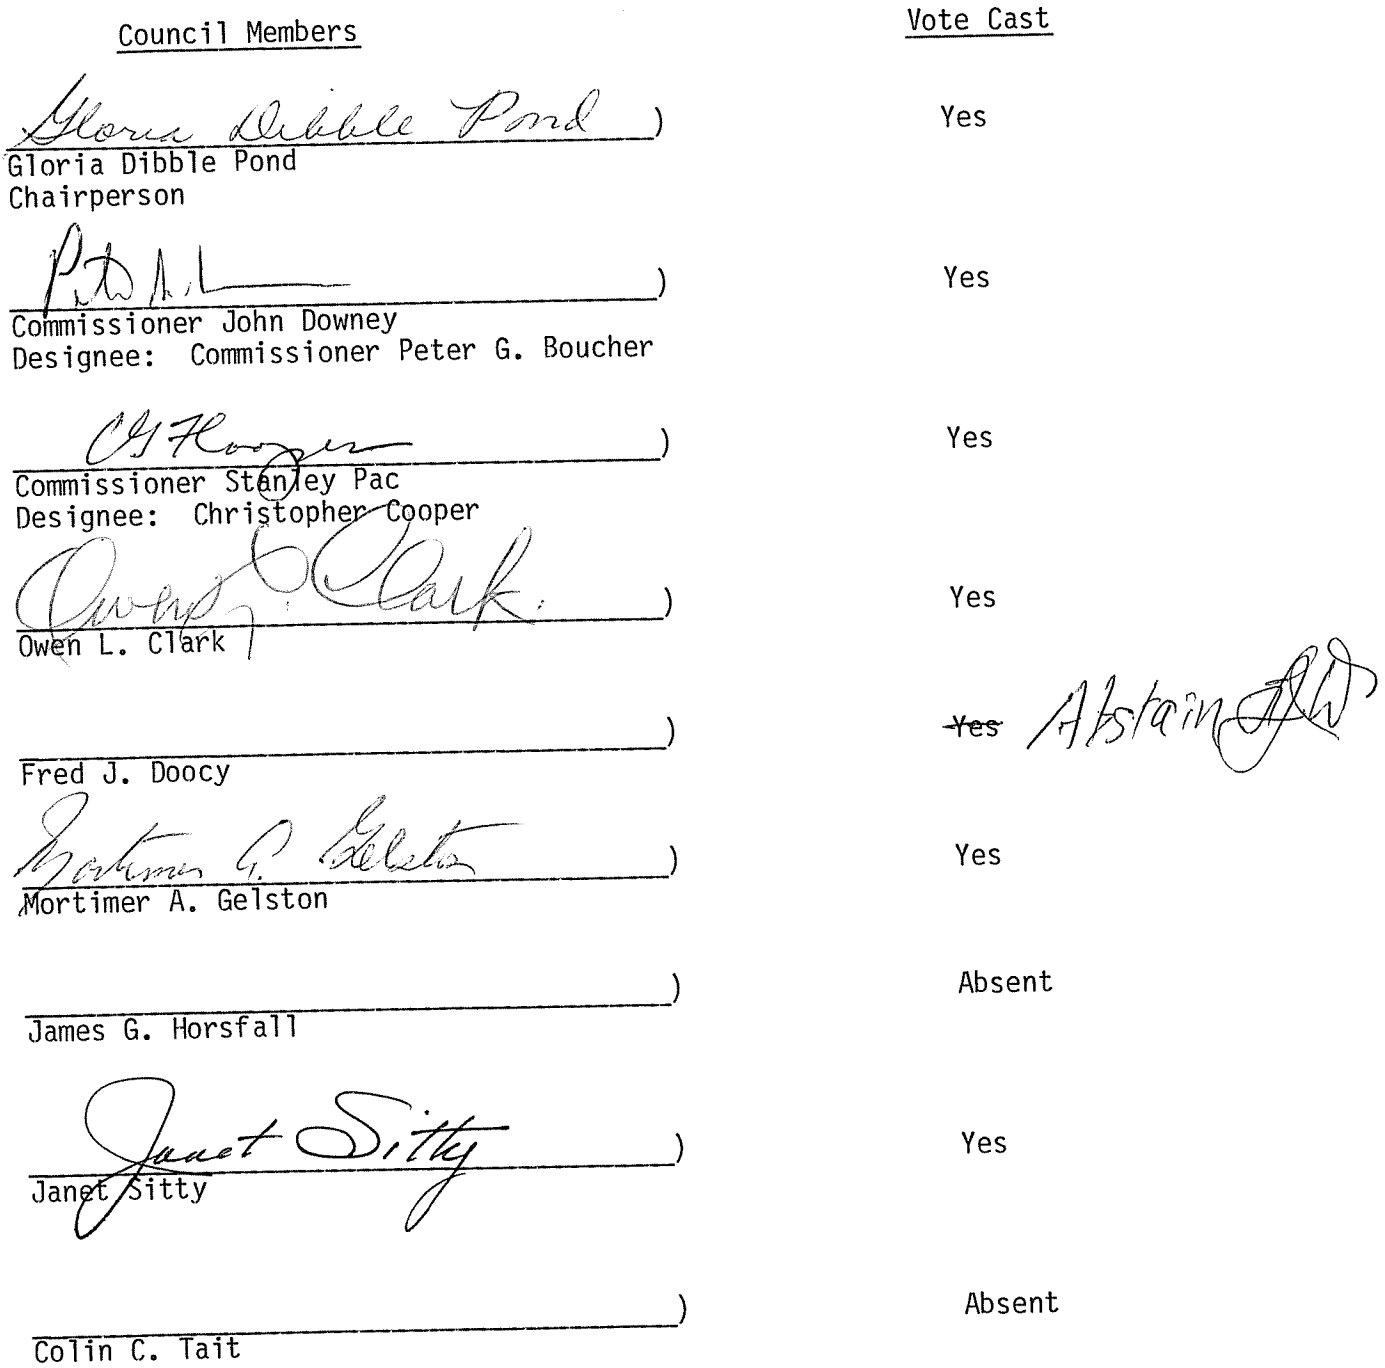 Council Members Vote Cast
Gloria Dibble Pond ) Yes
Gloria Dibble Pond
Chairperson
) Yes
Commissioner John Downey
Designee: Commissioner Peter G. Boucher
) Yes
Commissioner Stanley Pac
Designee: Christopher Cooper
Owen L. Clark ) Yes
Owen L. Clark
) Yes Abstain
Fred J. Doocy
Mortimer A. Gelston ) Yes
Mortimer A. Gelston
) Absent
James G. Horsfall
Janet Sitty ) Yes
Janet Sitty
) Absent
Colin C. Tait